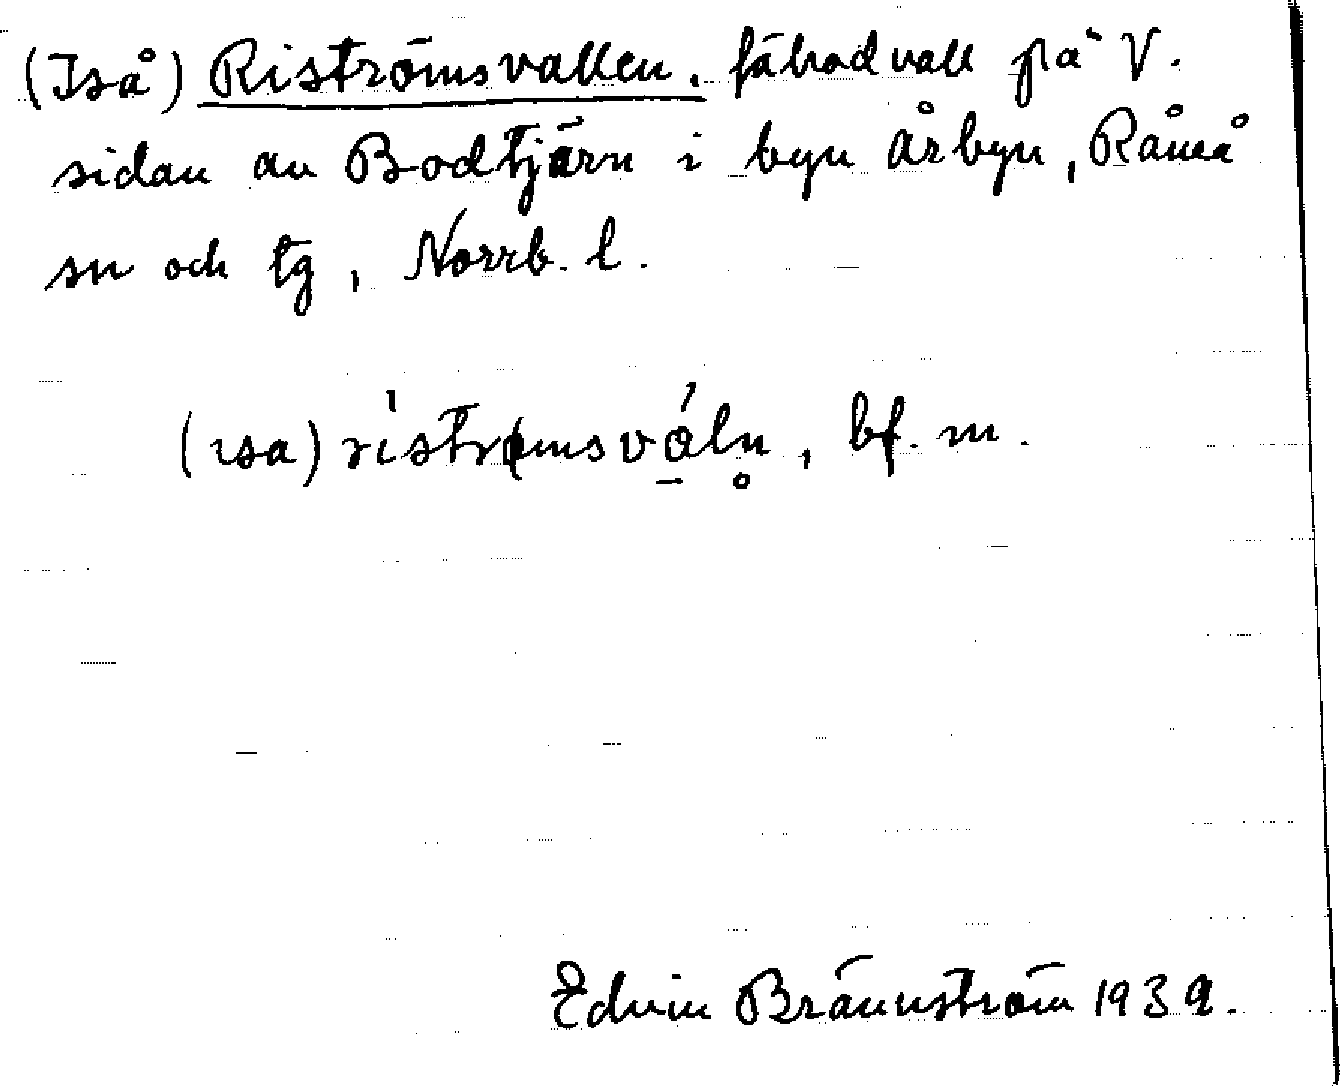 (Iså) Riströmsvallen. fäbodvall på V.
sidan av Bodtjärn i byn Årbyn, Råneå
sn och tg, Norrb. l.
(isa) ristrømsvåln̥, bf. m.
Edvin Brännström 1939.